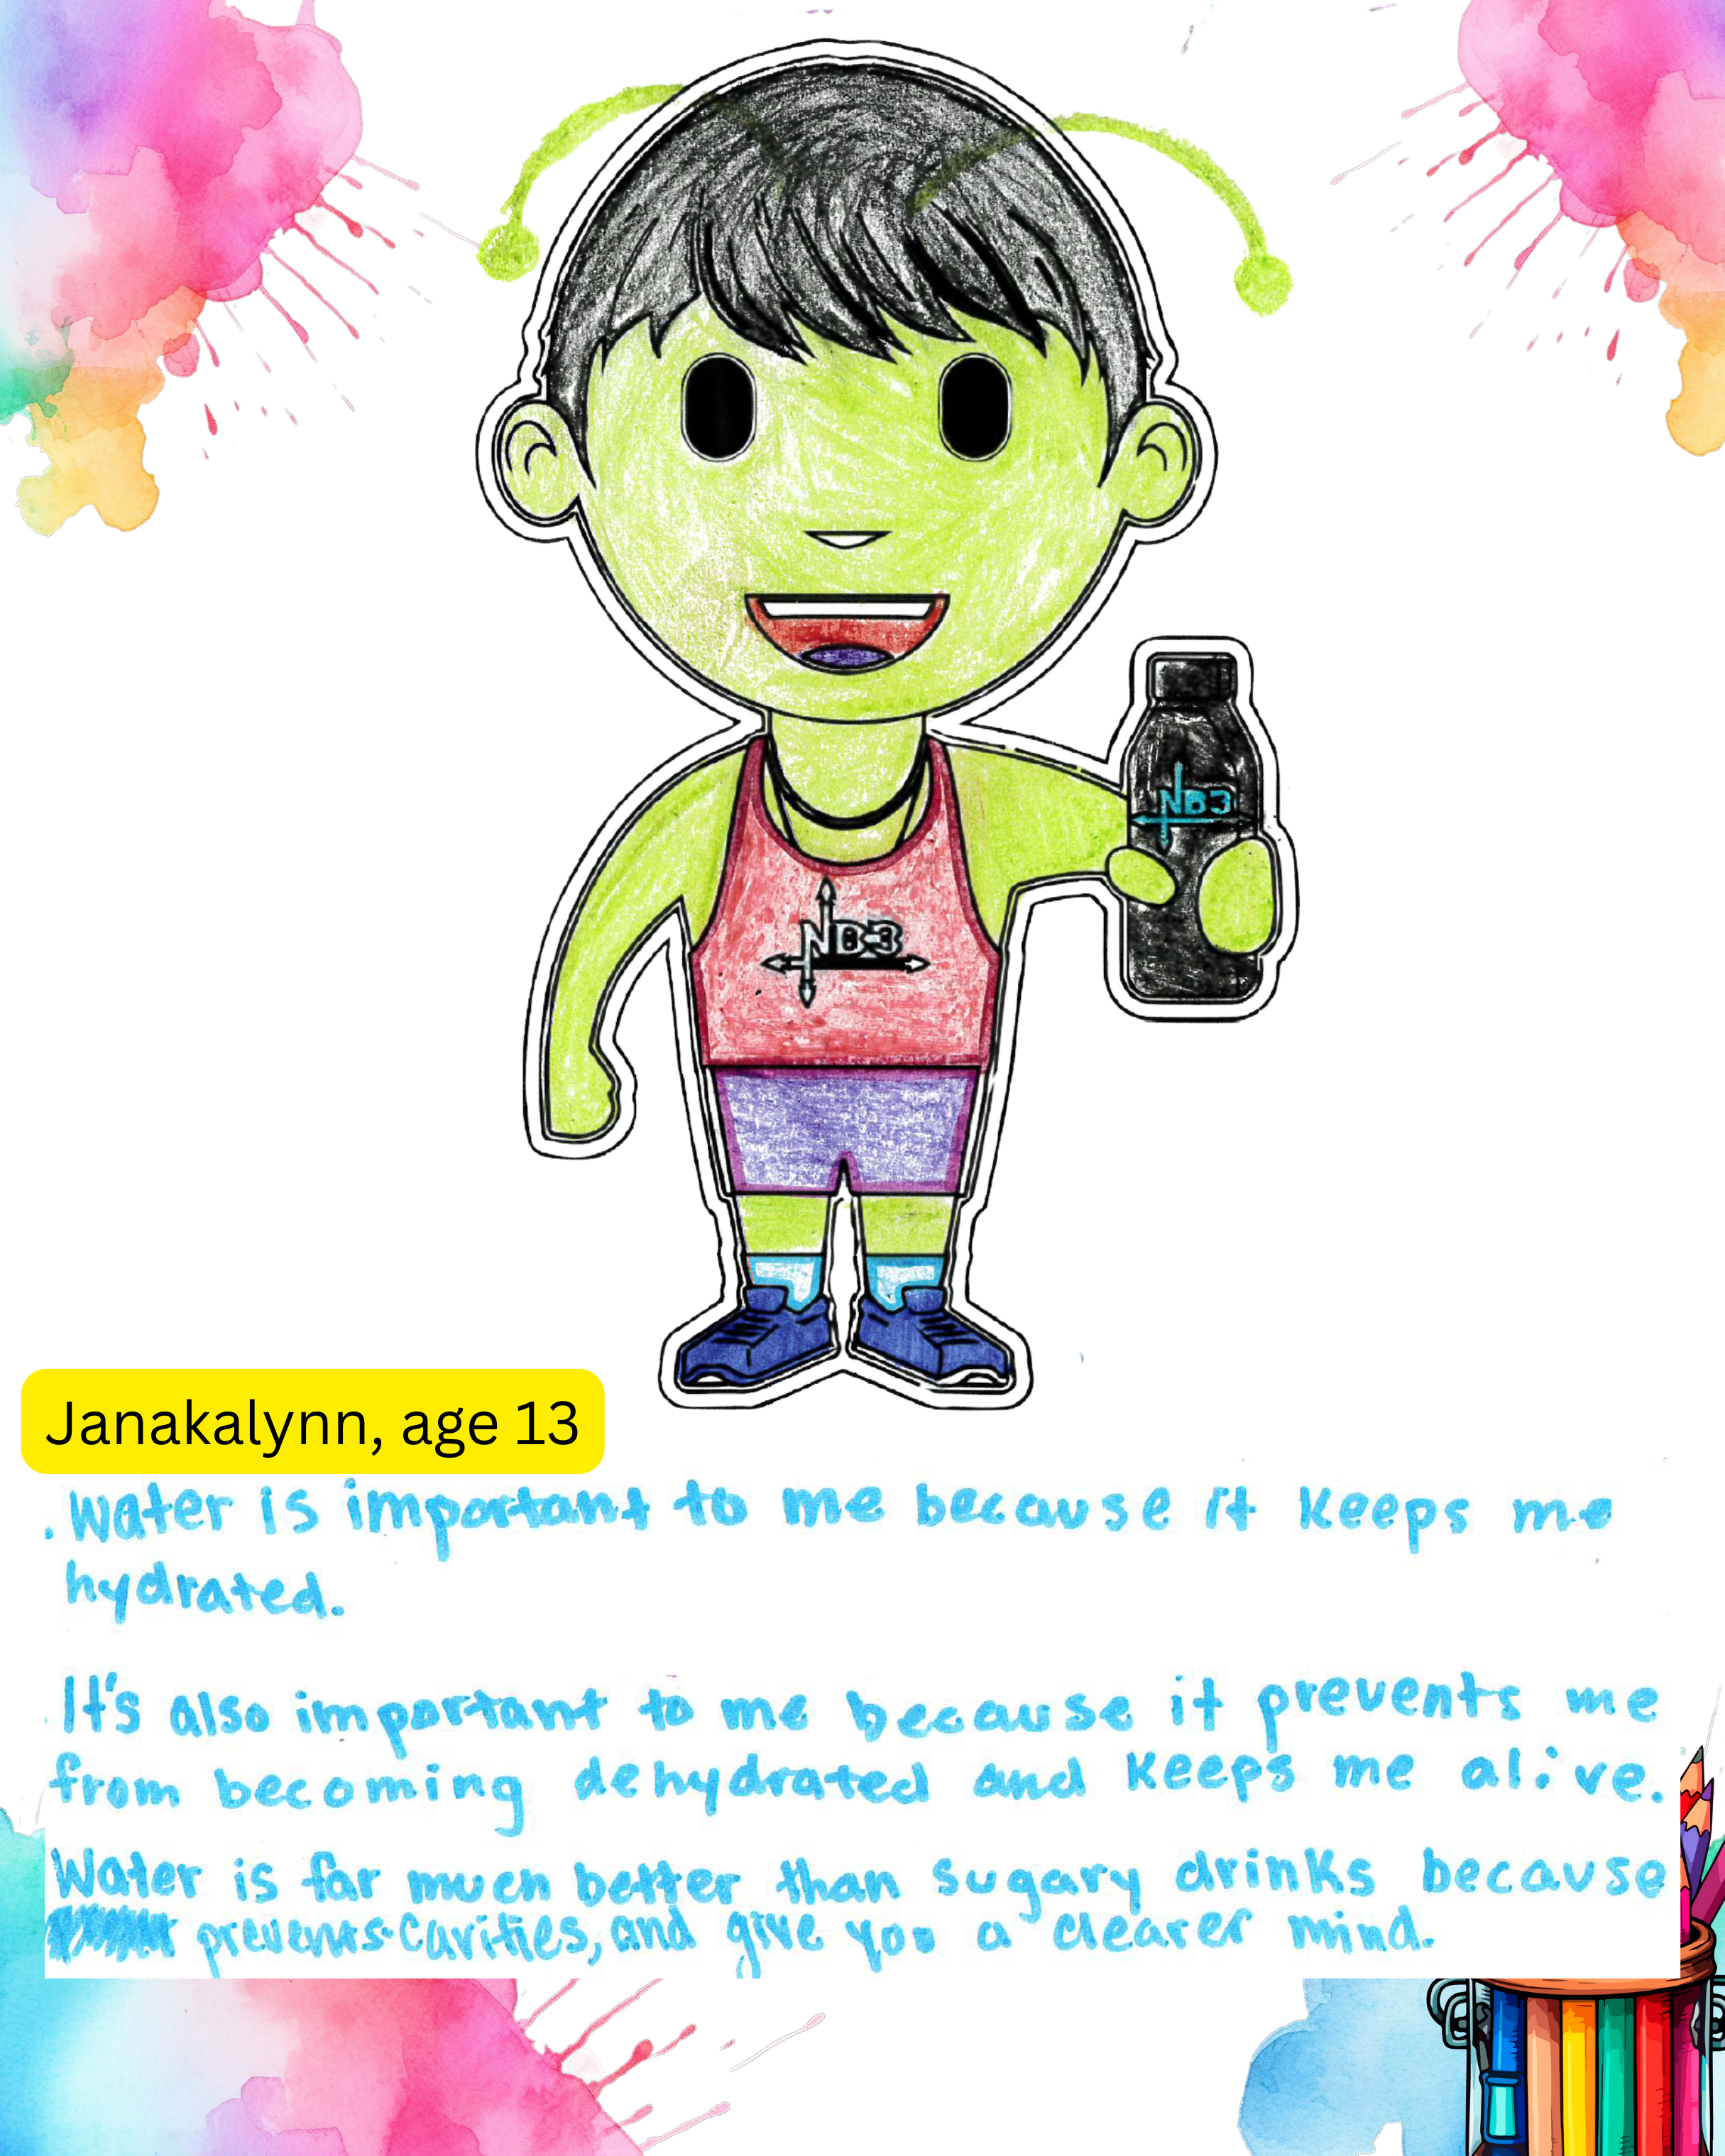 NB3
NB3
Janakalynn, age 13
. Water is important to me because it keeps me
hydrated.
It's also important to me because it prevents me
from becoming dehydrated and keeps me alive.
Water is far much better than sugary drinks because
prevents cavities, and give you a clearer mind.